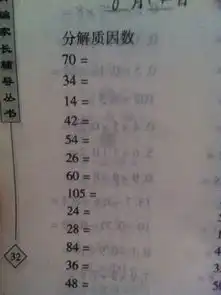 分解质因数
70 =
34 =
14 =
42 =
54 =
26 =
60 =
105 =
24 =
28 =
84 =
36 =
48 =
家长辅导丛书
32